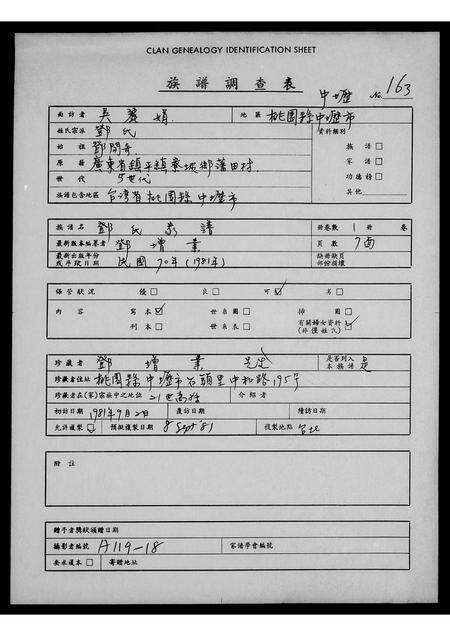 CLAN GENEALOGY IDENTIFICATION SHEET
族譜調查表
中壢 No. 163
面訪者 吳麗娟 地區 桃園縣中壢市
姓氏宗派 鄧氏 資料類別
始祖 鄧開舟 族譜
原籍 廣東省鎮平鎮 鄉莆田村 家譜
世代 5世代 功德榜
族譜包含地區 台灣省桃園縣中壢市 其他
族譜名 鄧氏家譜 冊卷數 1 冊 卷
最新版本編纂者 鄧增業 頁數 7面
最新出版年份或手改日期 民國70年(1981年) 缺冊缺頁部份損壞
保管狀況 優 良 可 劣
內容 寫本 世系圖 掃圖 有關婦女資料
刊本 世系表 (非僅姓氏)
珍藏者 鄧增業先生 是否列入本族譜 是
珍藏者住址 桃園縣中壢市石頭里中和路195號
珍藏者在(家)宗族中之地位 21世裔孫 介紹者
初訪日期 1981年9月2日 覆訪日期 續訪日期
允許複製 預擬複製日期 8 Sept '81 複製地點 台北
附註
贈予者獎狀頒贈日期
攝影者編號 A119-18 家譜學會編號
要求複本 寄贈地址